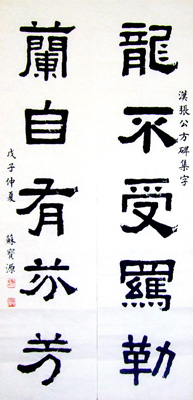 漢張公方碑集字
龍不受羈勒
蘭自有芬芳
戊子仲夏
蘇寶源